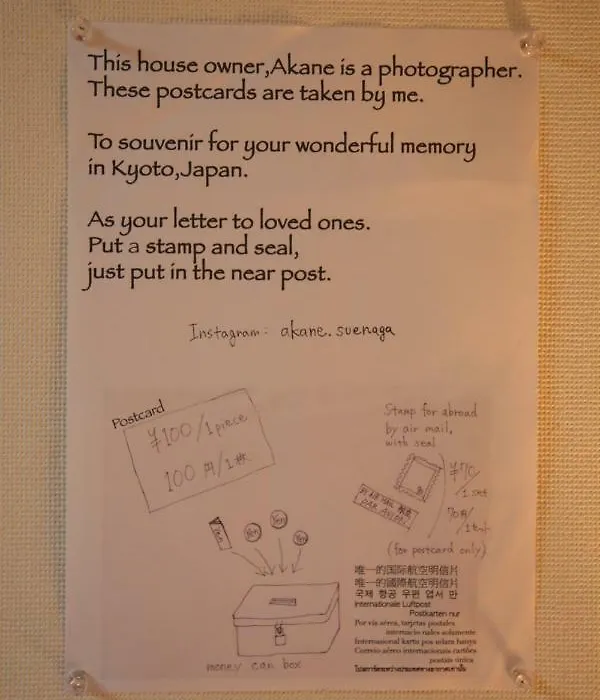 This house owner,Akane is a photographer.
These postcards are taken by me.
To souvenir for your wonderful memory
in Kyoto,Japan.
As your letter to loved ones.
Put a stamp and seal,
just put in the near post.
Instagram: akane.suenaga
Postcard
¥100/1piece
100円/1枚
Stamp for abroad
by air mail,
with seal
¥70/
1 set
70円/
1セット
BY AIR MAIL 航空
PAR AVION
(for postcard only)
Yen
Yen
Yen
money can box
唯一的国际航空明信片
唯一的國際航空明信片
국제 항공 우편 엽서 만
Internationale Luftpost
Postkarten nur
Por vía aérea, tarjetas postales
internacio nales solamente
Internasional karta pos udara hanya
Correio aéreo internacionais cartões
postais única